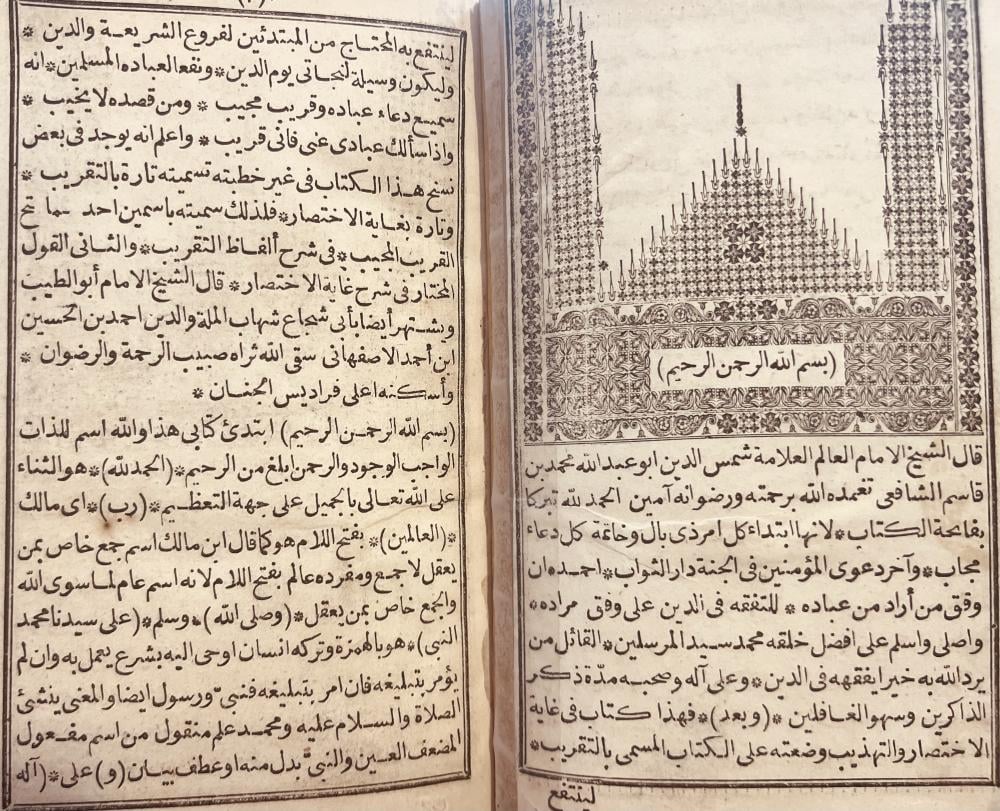 (بسم الله الرحمن الرحيم)
قال الشيخ الامام العالم العلامة شمس الدين ابو عبد الله محمد بن
قاسم الشافعى تغمده الله برحمته ورضوانه آمين الحمد لله تبركا
بفاتحة الكتاب * لانها ابتداء كل امر ذى بال وخاتمة كل دعاء
مجاب * وآخر دعوى المؤمنين فى الجنة دار الثواب * احمده ان
وفق من أراد من عباده * للتفقه فى الدين على وفق مراده *
واصلى واسلم على افضل خلقه محمد سيد المرسلين * القائل من
يرد الله به خيرا يفقهه فى الدين * وعلى آله وصحبه مدّة ذكر
الذاكرين وسهو الغافلين * (وبعد) * فهذا كتاب فى غاية
الاختصار والتهذيب وضعته على الكتاب المسمى بالتقريب *
لينتفع
لينتفع به المحتاج من المبتدئين لفروع الشريعة والدين *
وليكون وسيلة لنجاتى يوم الدين * ونفعا لعباده المسلمين * انه
سميع دعاء عباده وقريب مجيب * ومن قصده لا يخيب *
واذا سألك عبادى عنى فانى قريب * واعلم انه يوجد فى بعض
نسخ هذا الكتاب فى غير خطبته تسميته تارة بالتقريب *
وتارة بغاية الاختصار * فلذلك سميته باسمين احدهما فتح
القريب المجيب * فى شرح ألفاظ التقريب * والثانى القول
المختار فى شرح غاية الاختصار * قال الشيخ الامام أبو الطيب
ويشتهر أيضا بأبى شجاع شهاب الملة والدين احمد بن الحسين
ابن أحمد الاصفهانى سقى الله ثراه صبيب الرحمة والرضوان
وأسكنه اعلى فراديس الجنان *
(بسم الله الرحمن الرحيم) ابتدئ كتابى هذا والله اسم للذات
الواجب الوجود والرحمن ابلغ من الرحيم * (الحمد لله) * هو الثناء
على الله تعالى بالجميل على جهة التعظيم * (رب) * اى مالك
* (العالمين) * بفتح اللام هو كما قال ابن مالك اسم جمع خاص بمن
يعقل لا جمع ومفرده عالم بفتح اللام لانه اسم عام لما سوى الله
والجمع خاص بمن يعقل * (وصلى الله) * وسلم * (على سيدنا محمد
النبى) * هو بالهمزة وتركه انسان اوحى اليه بشرع يعمل به وان لم
يؤمر بتبليغه فان امر بتبليغه فنبىّ ورسول ايضا والمعنى ينشئ
الصلاة والسلام عليه ومحمد علم منقول من اسم مفعول
المضعف العين والنبىّ بدل منه او عطف بيان (و) على * (آله